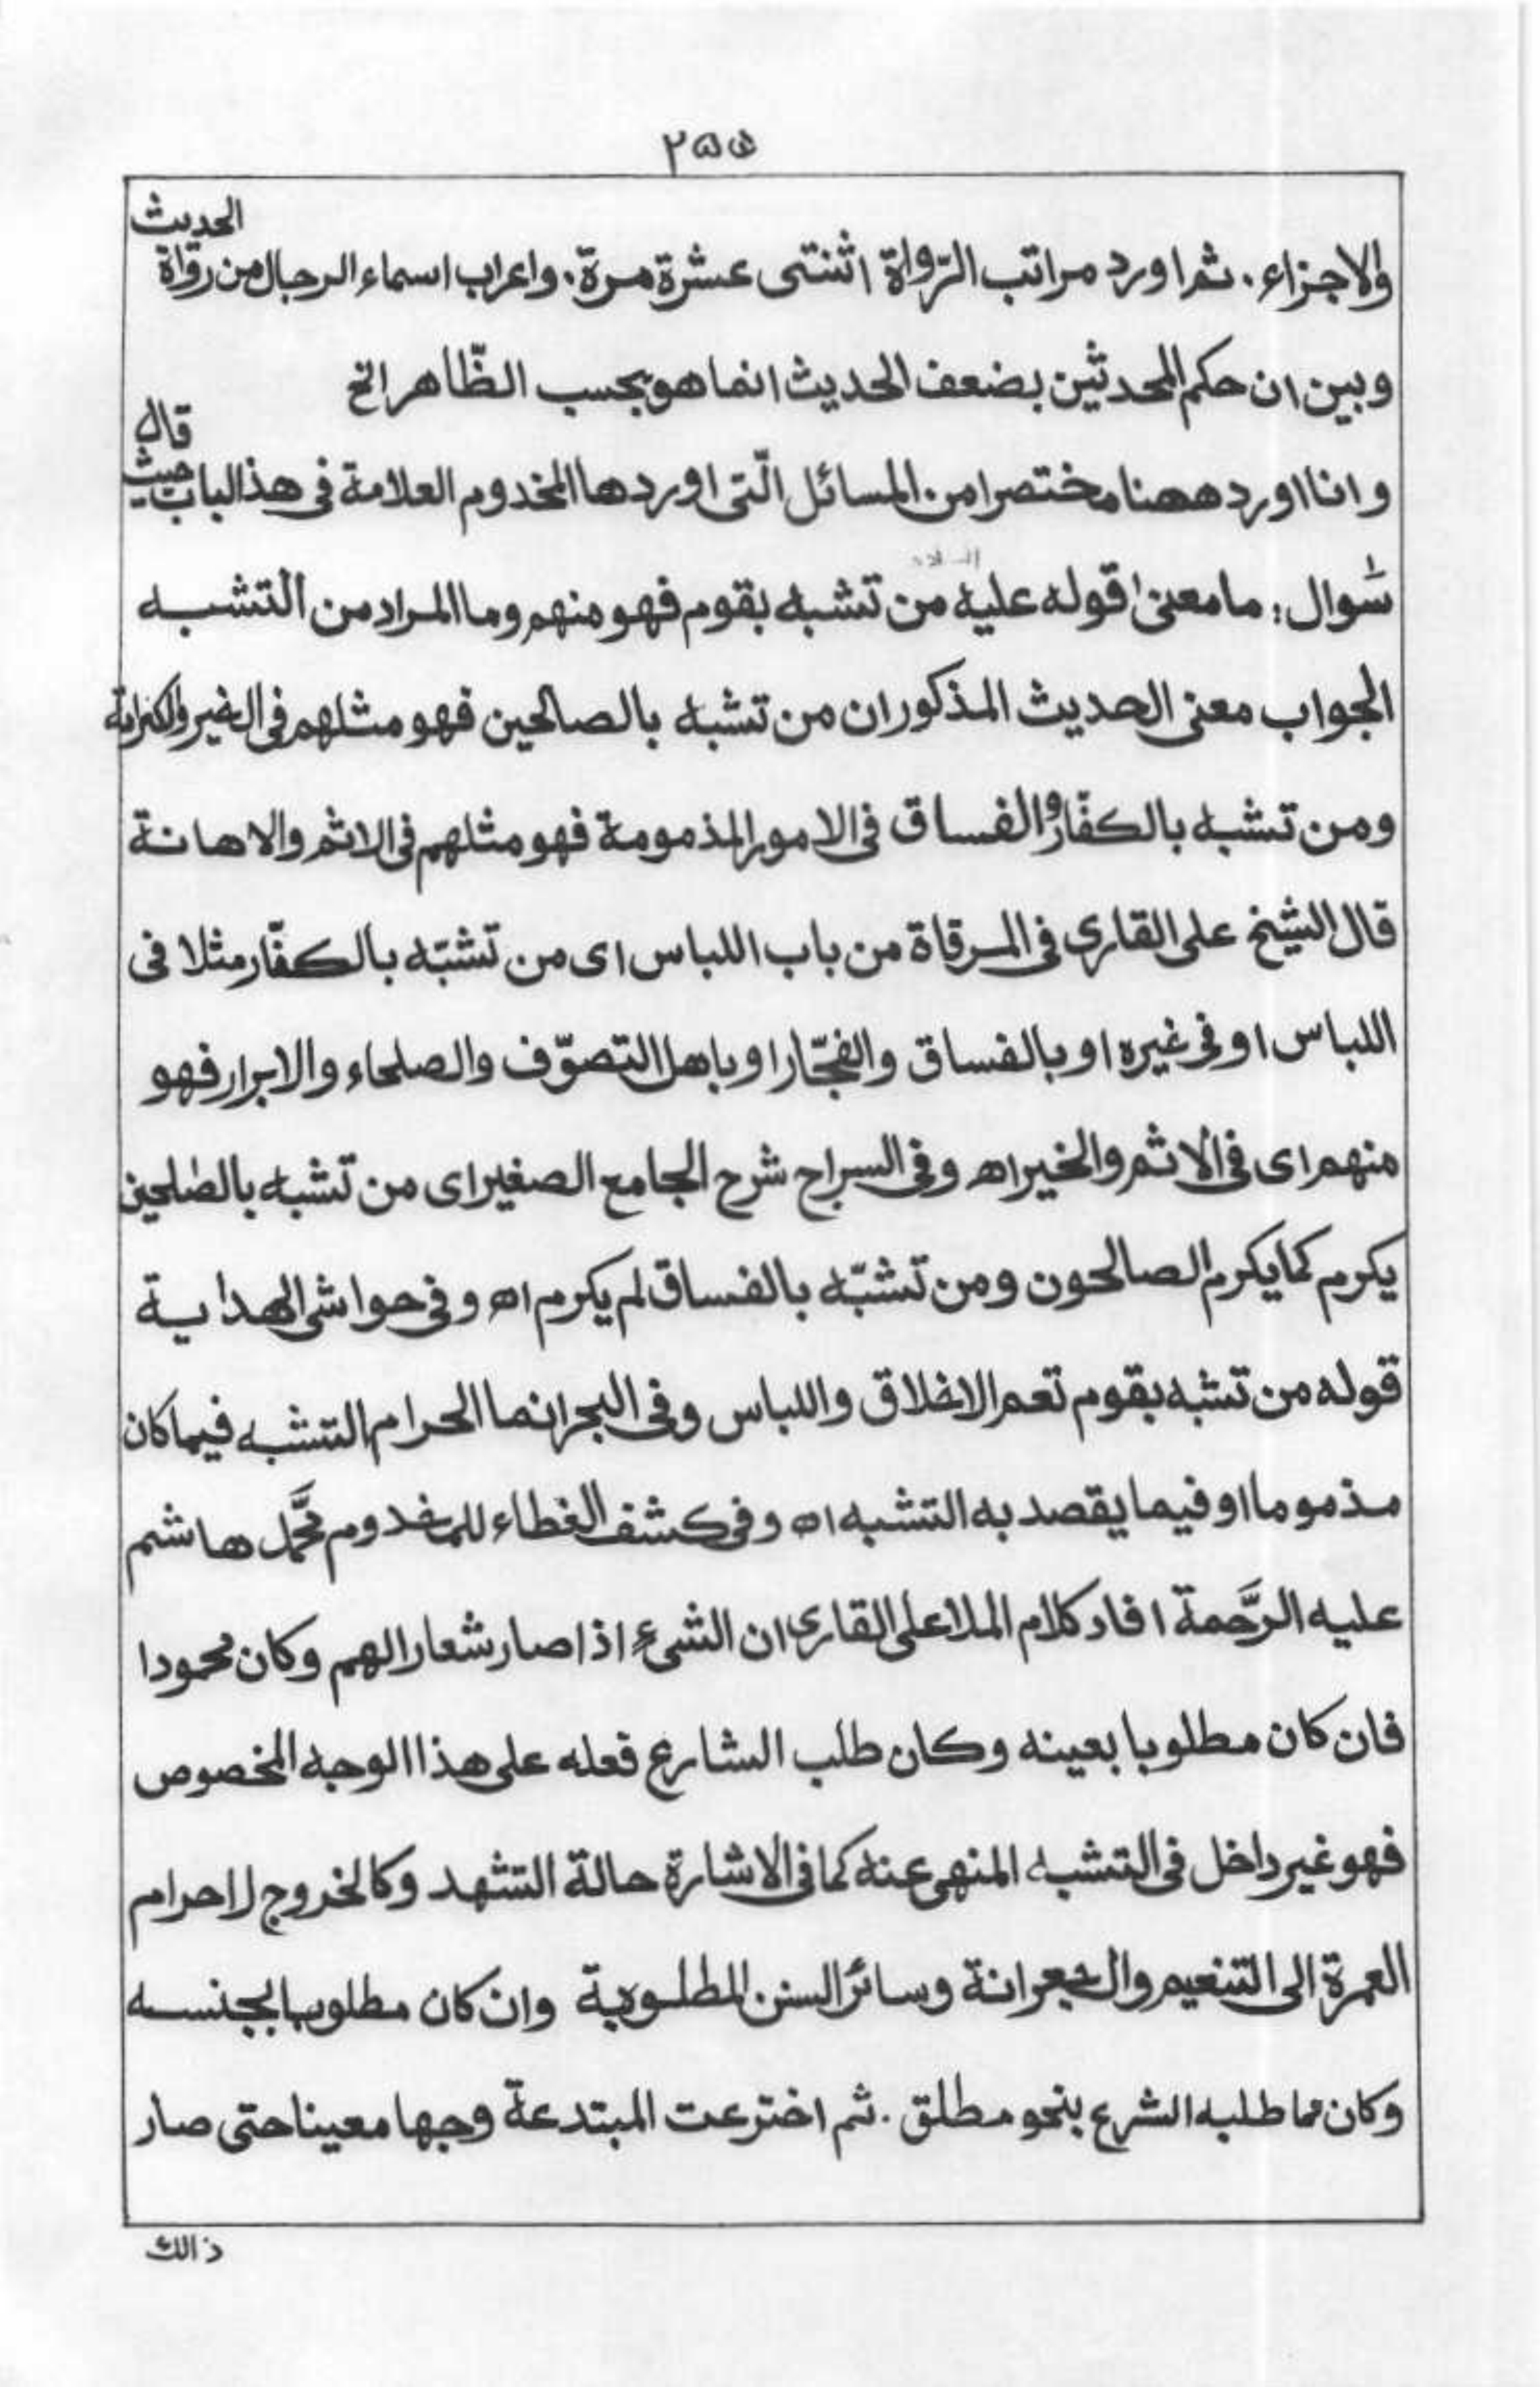 ٢٥٥
والاجزاء . ثم اورد مراتب الرّواة اثنتى عشرة مرة . واعراب اسماء الرجال من رواة الحديث
وبين ان حكم المحدثين بضعف الحديث انما هو بحسب الظّاهر الخ
وانا اورد ههنا مختصرا من المسائل الّتى اوردها المخدوم العلامة فى هذ الباب حيث قال
سٔوال : ما معنى قوله عليه السلام من تشبه بقوم فهو منهم وما المراد من التشبه
الجواب معنى الحديث المذكور ان من تشبه بالصالحين فهو مثلهم فى الخير والكرامة
ومن تشبه بالكفّار والفساق فى الامور المذمومة فهو مثلهم فى الاثم والاهانة
قال الشيخ على القارى فى المرقاة من باب اللباس اى من تشبّه بالكفّار مثلا فى
اللباس او فى غيره او بالفساق والفجّار او باهل التصوّف والصلحاء والابرار فهو
منهم اى فى الاثم والخير اه وفى السراج شرح الجامع الصغير اى من تشبه بالصٰلحين
يكرم كما يكرم الصالحون ومن تشبّه بالفساق لم يكرم اه وفى حواشى الهداية
قوله من تشبه بقوم تعم الاخلاق واللباس وفى البحر انما الحرام التشبه فيما كان
مذموما او فيما يقصد به التشبه اه وفى كشف الغطاء للمخدوم محمَّد هاشم
عليه الرَّحمة افاد كلام الملا على القارى ان الشىء اذا صار شعارا لهم وكان محمودا
فان كان مطلوبا بعينه وكان طلب الشارع فعله على هذا الوجه المخصوص
فهو غير داخل فى التشبه المنهى عنه كما فى الاشارة حالة التشهد وكالخروج لاحرام
العمرة الى التنعيم والجعرانة وسائر السنن المطلوبة وان كان مطلوبا بجنسه
وكان مما طلبه الشرع بنحو مطلق . ثم اخترعت المبتدعة وجها معينا حتى صار
ذالك